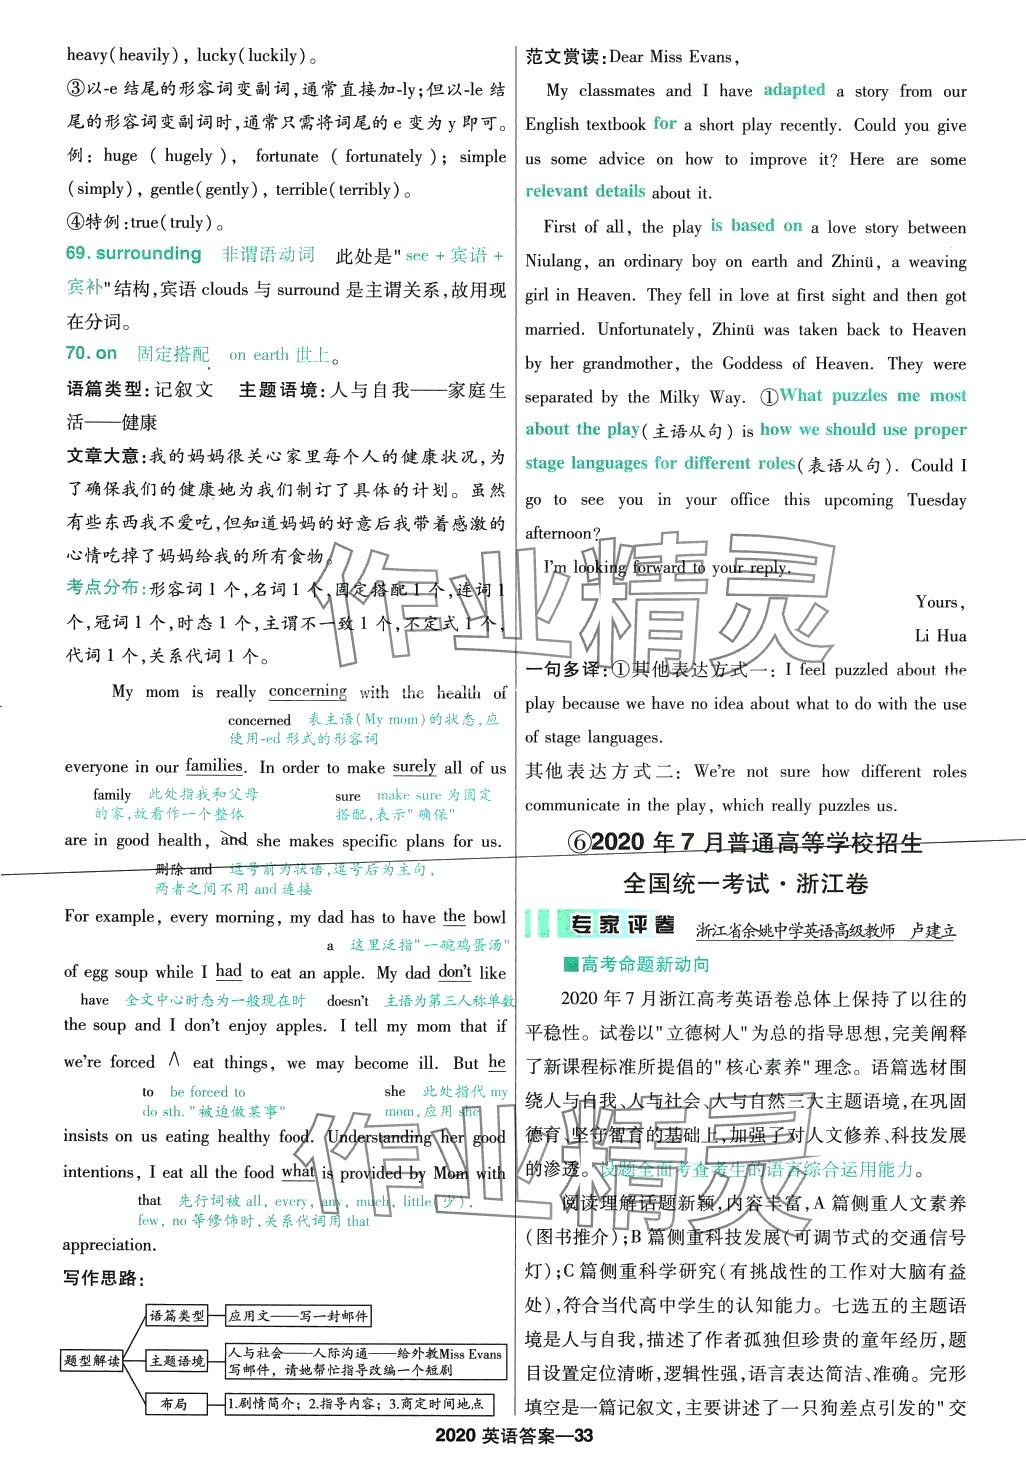 heavy(heavily), lucky(luckily)。
③以-e 结尾的形容词变副词,通常直接加-ly;但以-le 结
尾的形容词变副词时,通常只需将词尾的 e 变为 y 即可。
例: huge ( hugely ), fortunate ( fortunately ); simple
(simply), gentle(gently), terrible(terribly)。
④特例:true(truly)。
69. surrounding 非谓语动词 此处是"see + 宾语 +
宾补"结构,宾语 clouds 与 surround 是主谓关系,故用现
在分词。
70. on 固定搭配 on earth 世上。
语篇类型:记叙文 主题语境:人与自我——家庭生
活——健康
文章大意:我的妈妈很关心家里每个人的健康状况,为
了确保我们的健康她为我们制订了具体的计划。虽然
有些东西我不爱吃,但知道妈妈的好意后我带着感激的
心情吃掉了妈妈给我的所有食物。
考点分布:形容词 1 个,名词 1 个,固定搭配 1 个,连词 1
个,冠词 1 个,时态 1 个,主谓不一致 1 个,不定式 1 个,
代词 1 个,关系代词 1 个。
My mom is really concerning with the health of
concerned 表主语(My mom)的状态,应
使用-ed 形式的形容词
everyone in our families. In order to make surely all of us
family 此处指我和父母 sure make sure 为固定
的家,故看作一个整体 搭配,表示"确保"
are in good health, and she makes specific plans for us.
删除 and 逗号前为状语,逗号后为主句,
两者之间不用 and 连接
For example, every morning, my dad has to have the bowl
a 这里泛指"一碗鸡蛋汤"
of egg soup while I had to eat an apple. My dad don't like
have 全文中心时态为一般现在时 doesn't 主语为第三人称单数
the soup and I don't enjoy apples. I tell my mom that if
we're forced ∧ eat things, we may become ill. But he
to be forced to she 此处指代 my
do sth. "被迫做某事" mom,应用 she
insists on us eating healthy food. Understanding her good
intentions, I eat all the food what is provided by Mom with
that 先行词被 all, every, any, much, little(少),
few, no 等修饰时,关系代词用 that
appreciation.
写作思路:
语篇类型 应用文——写一封邮件
题型解读 主题语境 人与社会——人际沟通——给外教Miss Evans
写邮件,请她帮忙指导改编一个短剧
布局 1.剧情简介; 2.指导内容; 3.商定时间地点
范文赏读:Dear Miss Evans,
My classmates and I have adapted a story from our
English textbook for a short play recently. Could you give
us some advice on how to improve it? Here are some
relevant details about it.
First of all, the play is based on a love story between
Niulang, an ordinary boy on earth and Zhinü, a weaving
girl in Heaven. They fell in love at first sight and then got
married. Unfortunately, Zhinü was taken back to Heaven
by her grandmother, the Goddess of Heaven. They were
separated by the Milky Way. ①What puzzles me most
about the play(主语从句) is how we should use proper
stage languages for different roles(表语从句). Could I
go to see you in your office this upcoming Tuesday
afternoon?
I'm looking forward to your reply.
Yours,
Li Hua
一句多译:①其他表达方式一: I feel puzzled about the
play because we have no idea about what to do with the use
of stage languages.
其他表达方式二: We're not sure how different roles
communicate in the play, which really puzzles us.
⑥2020 年 7 月普通高等学校招生
全国统一考试·浙江卷
专家评卷 浙江省余姚中学英语高级教师 卢建立
■高考命题新动向
2020 年 7 月浙江高考英语卷总体上保持了以往的
平稳性。试卷以"立德树人"为总的指导思想,完美阐释
了新课程标准所提倡的"核心素养"理念。语篇选材围
绕人与自我、人与社会、人与自然三大主题语境,在巩固
德育、坚守智育的基础上,加强了对人文修养、科技发展
的渗透。设题全面考查考生的语言综合运用能力。
阅读理解话题新颖,内容丰富,A 篇侧重人文素养
(图书推介);B 篇侧重科技发展(可调节式的交通信号
灯);C 篇侧重科学研究(有挑战性的工作对大脑有益
处),符合当代高中学生的认知能力。七选五的主题语
境是人与自我,描述了作者孤独但珍贵的童年经历,题
目设置定位清晰,逻辑性强,语言表达简洁、准确。完形
填空是一篇记叙文,主要讲述了一只狗差点引发的"交
2020 英语答案—33
作业精灵
作业精灵